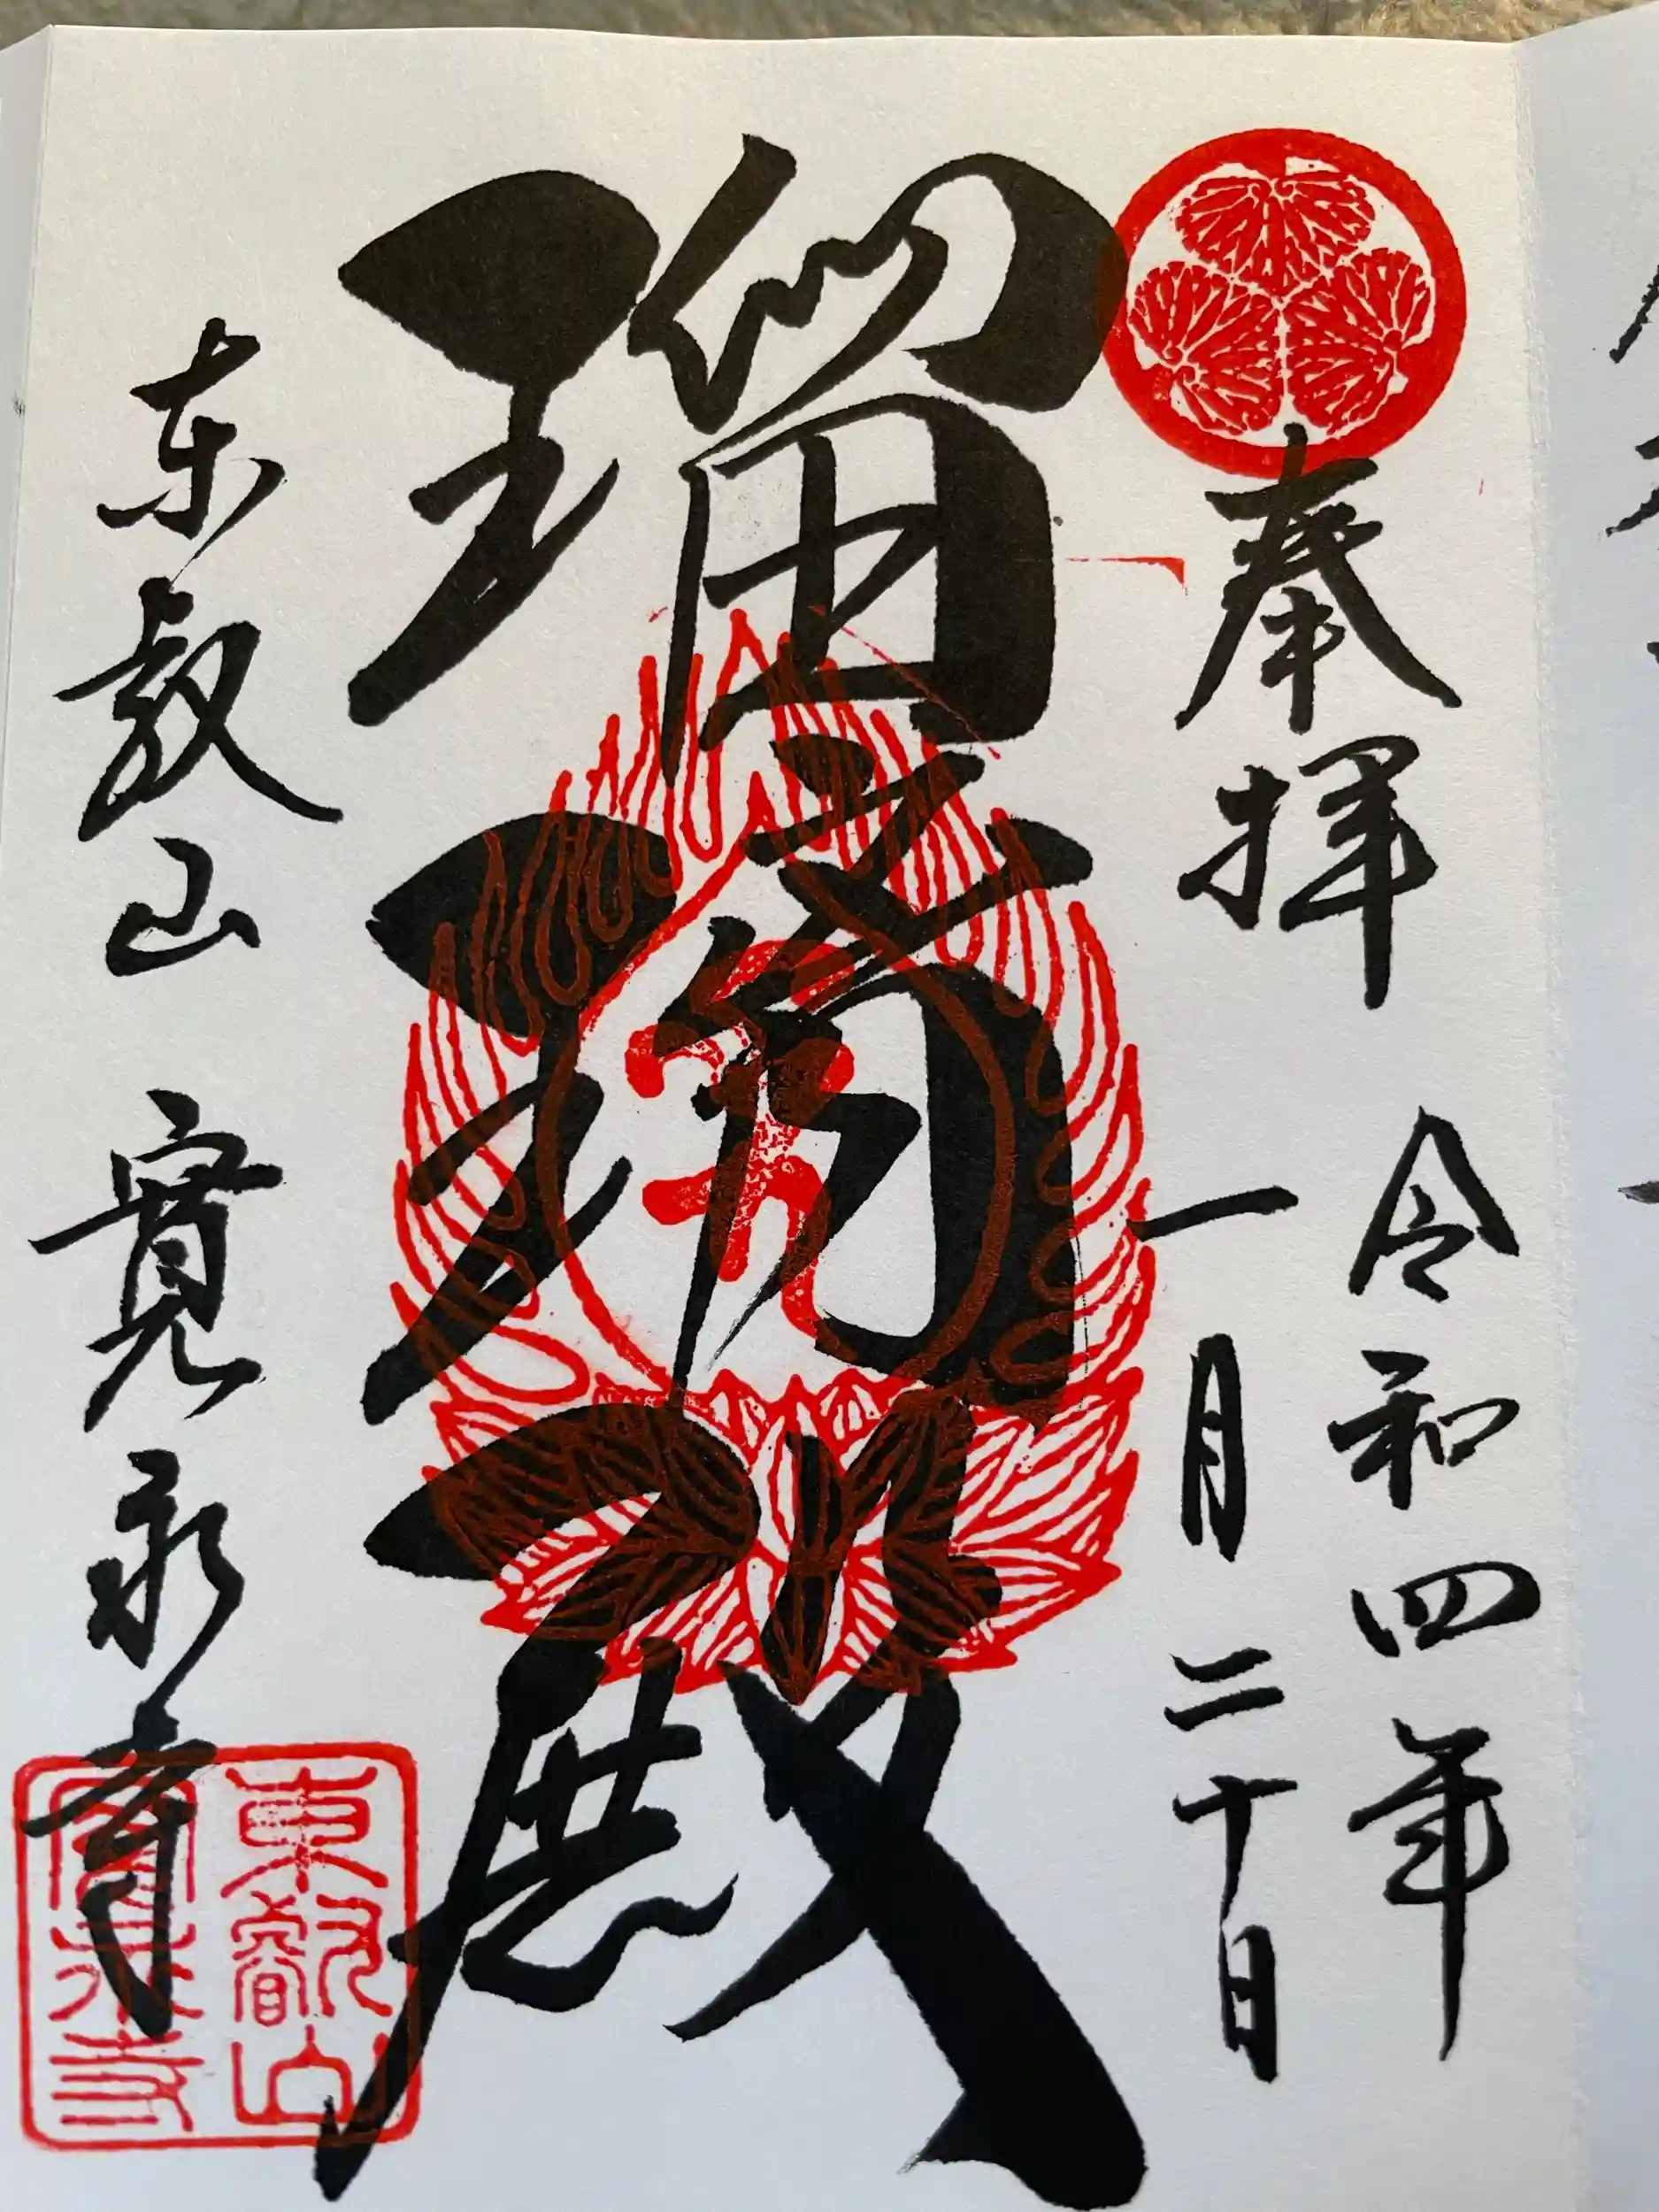 奉拝
令和四年
一月二十日
瑠璃殿
東叡山 寛永寺
東叡山
寛永寺